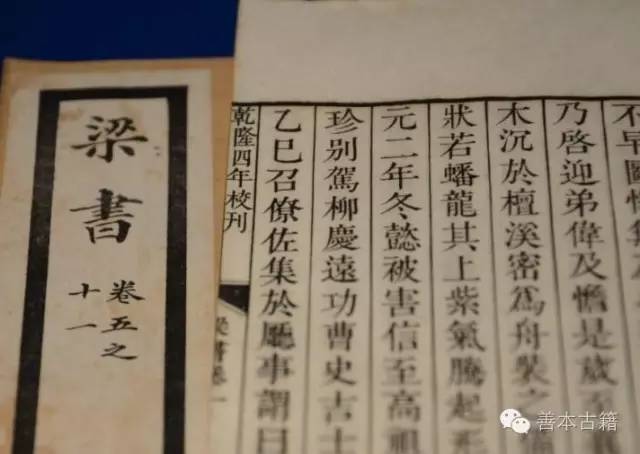 不早圖悔
乃啓迎弟偉及憺是歲至
木沉於檀溪密爲舟裝之備
狀若蟠龍其上紫氣騰起形
元二年冬懿被害信至高祖
珍別駕柳慶遠功曹史吉士
乙巳召僚佐集於廳事謂曰
乾隆四年校刊
梁書卷一
梁書
卷五之
十一
善本古籍